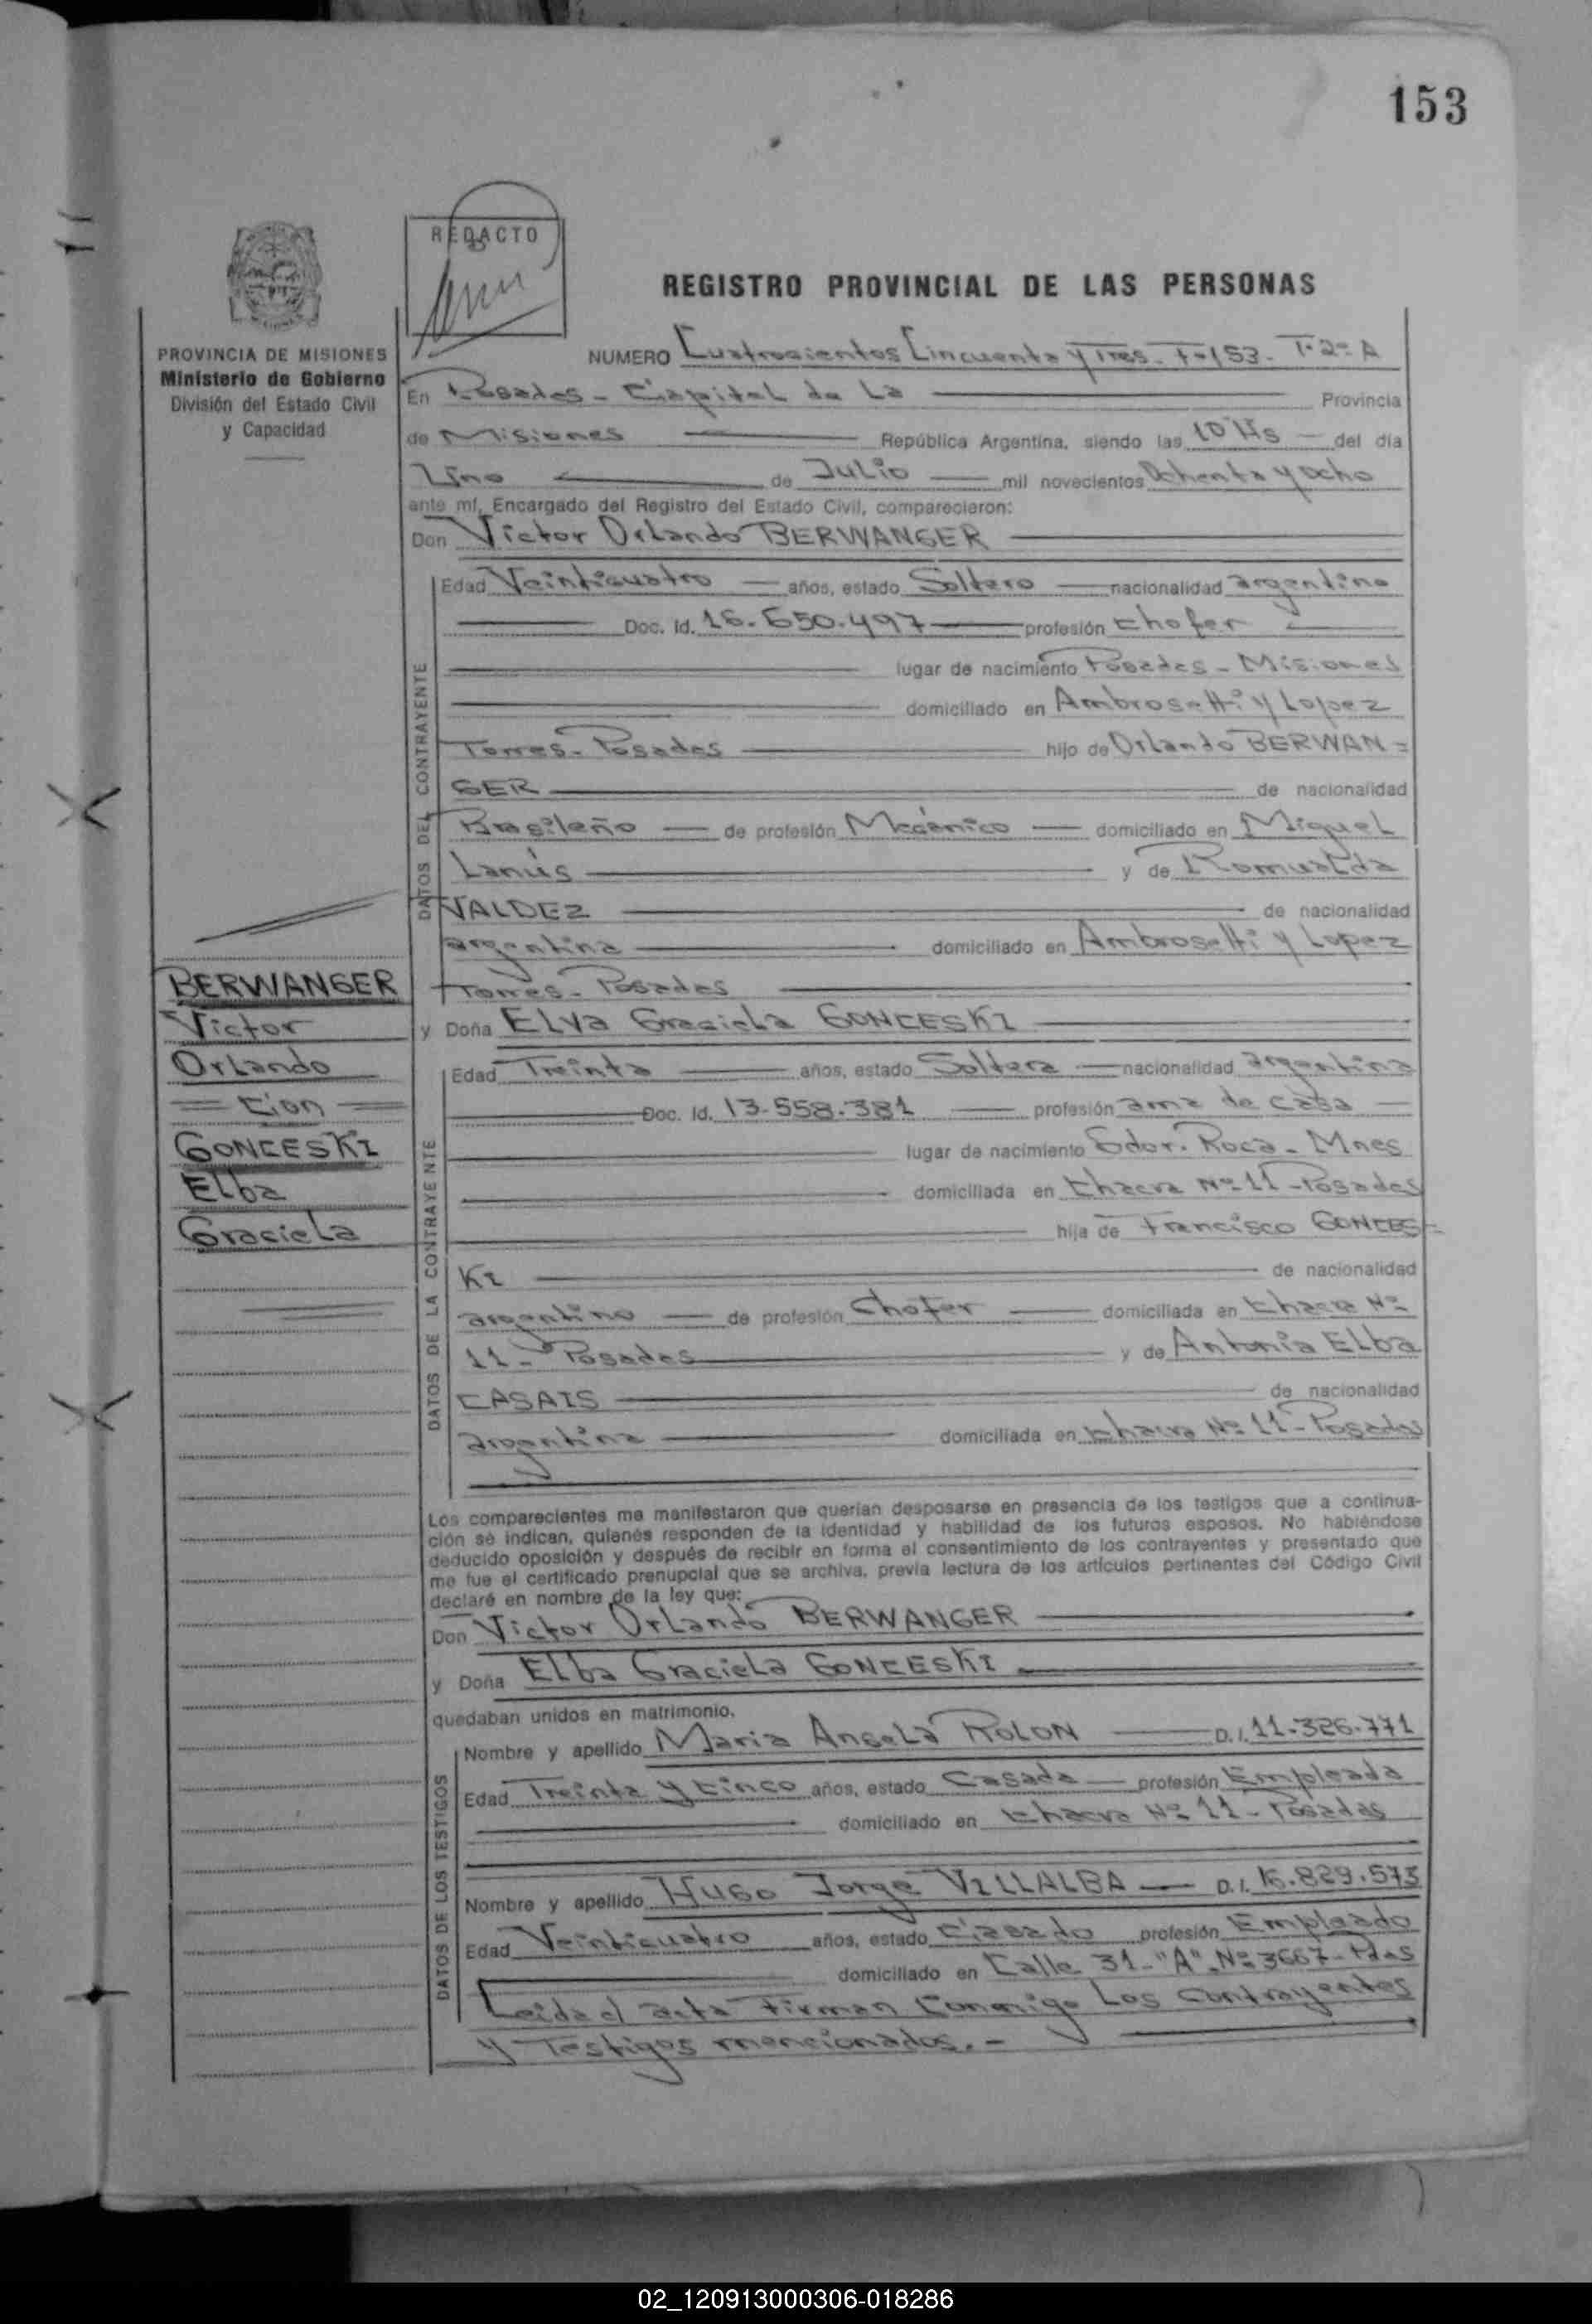 153
REDACTO
REGISTRO PROVINCIAL DE LAS PERSONAS
PROVINCIA DE MISIONES
Ministerio de Gobierno
División del Estado Civil
y Capacidad
NUMERO Cuatrocientos Cincuenta y Tres - F-153 - T-2º A
En Posadas - Capital de La Provincia
de Misiones República Argentina, siendo las 10 Hs del día
Uno de Julio mil novecientos Ochenta y ocho
ante mí, Encargado del Registro del Estado Civil, comparecieron:
Don Victor Orlando BERWANGER
DATOS DEL CONTRAYENTE
Edad Veinticuatro años, estado Soltero nacionalidad argentino
Doc. Id. 16.650.497 profesión chofer
lugar de nacimiento Posadas - Misiones
domiciliado en Ambrosetti y Lopez
Torres - Posadas hijo de Orlando BERWAN=
GER de nacionalidad
Brasileño de profesión Mecánico domiciliado en Miguel
Lanús y de Romualda
VALDEZ de nacionalidad
argentina domiciliado en Ambrosetti y Lopez
Torres - Posadas
BERWANGER
Victor
Orlando
= con =
GONCESKI
Elba
Graciela
y Doña ELVA Graciela GONCESKI
DATOS DE LA CONTRAYENTE
Edad Treinta años, estado Soltera nacionalidad argentina
Doc. Id. 13.558.381 profesión ama de casa
lugar de nacimiento Gdor. Roca - Mnes
domiciliada en Chacra Nº 11 - Posadas
hija de Francisco GONCES=
KI de nacionalidad
argentino de profesión Chofer domiciliada en Chacra Nº
11 - Posadas y de Antonia Elba
CASAIS de nacionalidad
argentina domiciliada en Chacra Nº 11 - Posadas
Los comparecientes me manifestaron que querían desposarse en presencia de los testigos que a continua-
ción se indican, quienes responden de la identidad y habilidad de los futuros esposos. No habiéndose
deducido oposición y después de recibir en forma el consentimiento de los contrayentes y presentado que
me fue el certificado prenupcial que se archiva, previa lectura de los artículos pertinentes del Código Civil
declaré en nombre de la ley que:
Don Victor Orlando BERWANGER
y Doña Elba Graciela GONCESKI
quedaban unidos en matrimonio.
DATOS DE LOS TESTIGOS
Nombre y apellido Maria Angela ROLON D.I. 11.326.771
Edad Treinta y Cinco años, estado Casada profesión Empleada
domiciliado en Chacra Nº 11 - Posadas
Nombre y apellido Hugo Jorge VILLALBA D.I. 16.829.573
Edad Veinticuatro años, estado Casado profesión Empleado
domiciliado en Calle 31 - "A" - Nº 3667 - Pdas
Leida el acta Firman Conmigo Los Contrayentes
y Testigos mencionados. -
02_120913000306-018286